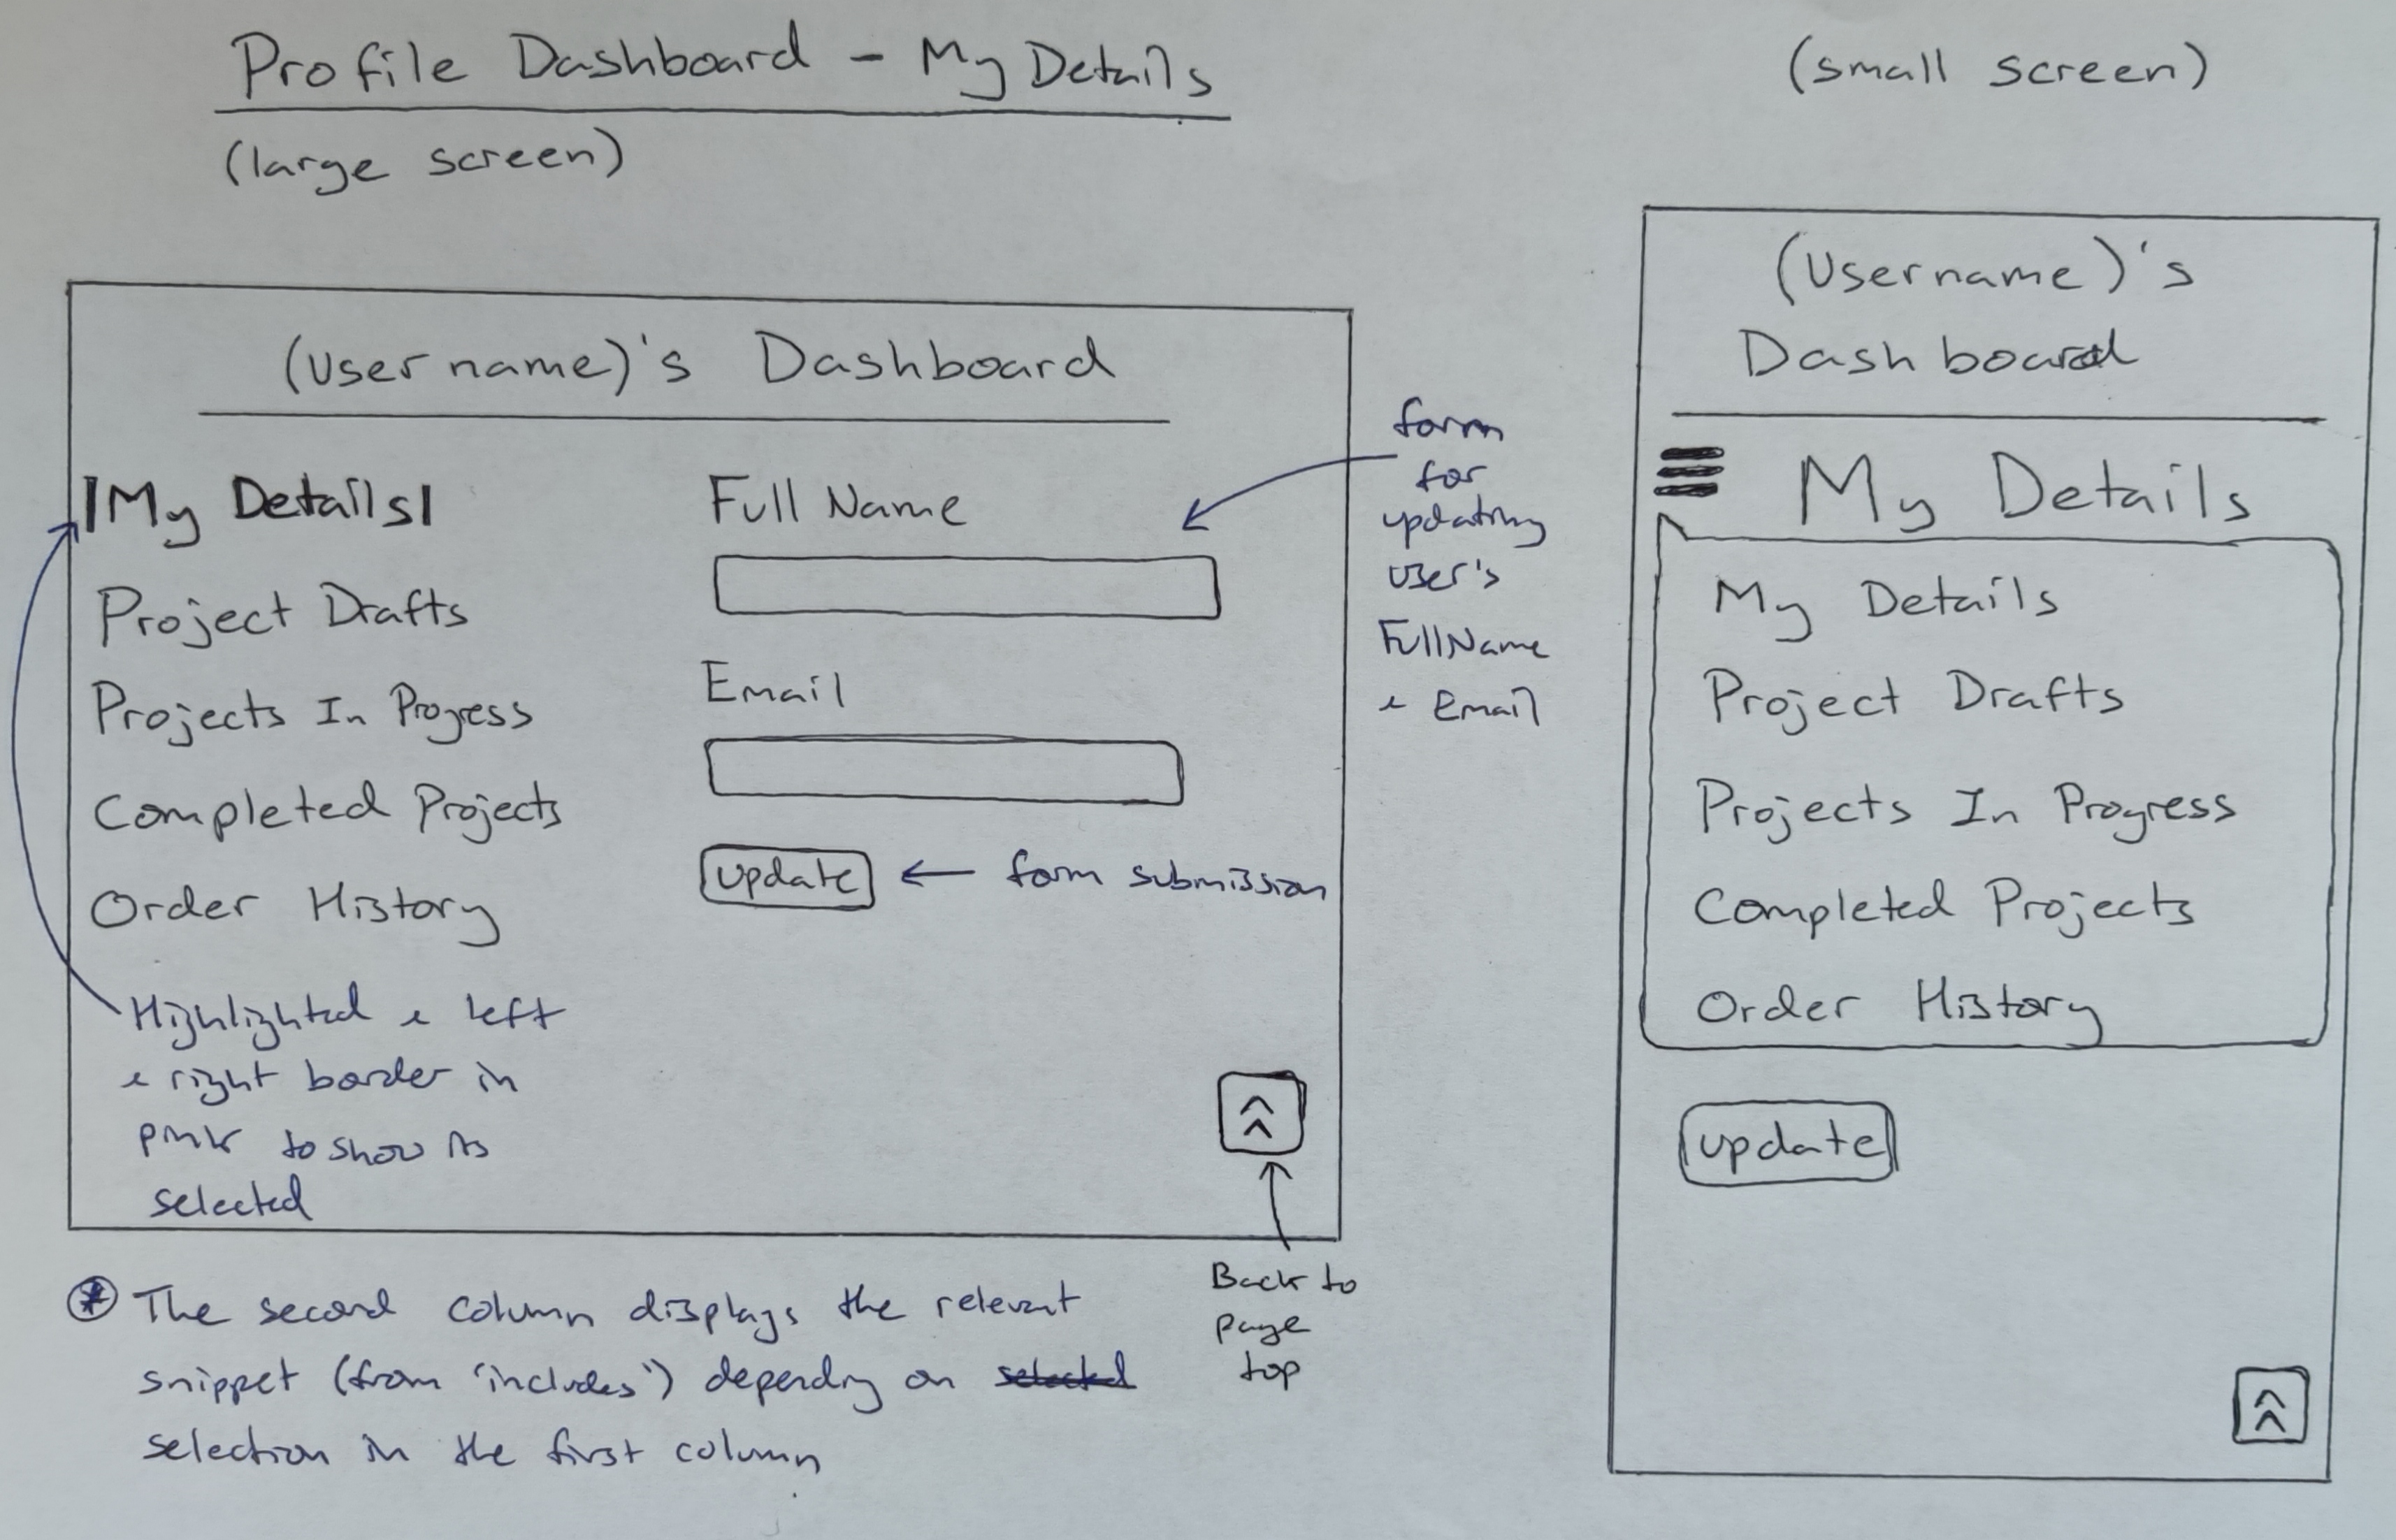 Profile Dashboard - My Details
(large screen)
(Username)'s Dashboard
My Details
Project Drafts
Projects In Progress
Completed Projects
Order History
Highlighted & left
& right border in
pink to show its
selected
Full Name
Email
update
← form submission
form
for
updating
user's
Full Name
& Email
Back to
page
top
* The second column displays the relevant
snippet (from 'includes') depending on selected
selection in the first column
(small screen)
(Username)'s
Dashboard
My Details
My Details
Project Drafts
Projects In Progress
Completed Projects
Order History
update